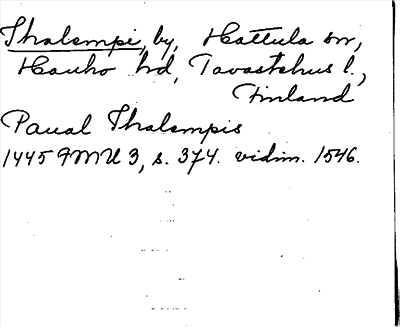 Ihalempi, by, Hattula sn,
Hauho hd, Tavastehus l.,
Finland
Paual Ihalempis
1445 FMU 3, s. 374. vidim. 1546.